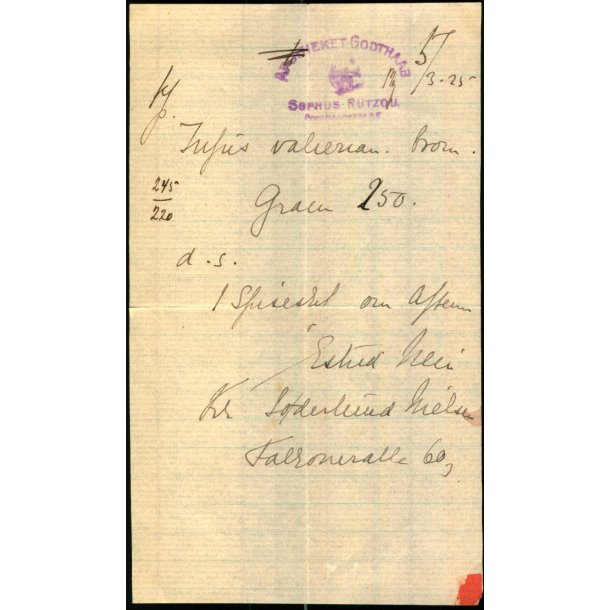 APOTHEKET GODTHAAB
SOPHUS RÜTZOU
5/3-25
Infus valerian. brom.
245
220
Gram 250.
d.s.
1 Spiseskf om Aftenn
Estrid
Fr Søderlund Nielsen
Falkoneralle 60